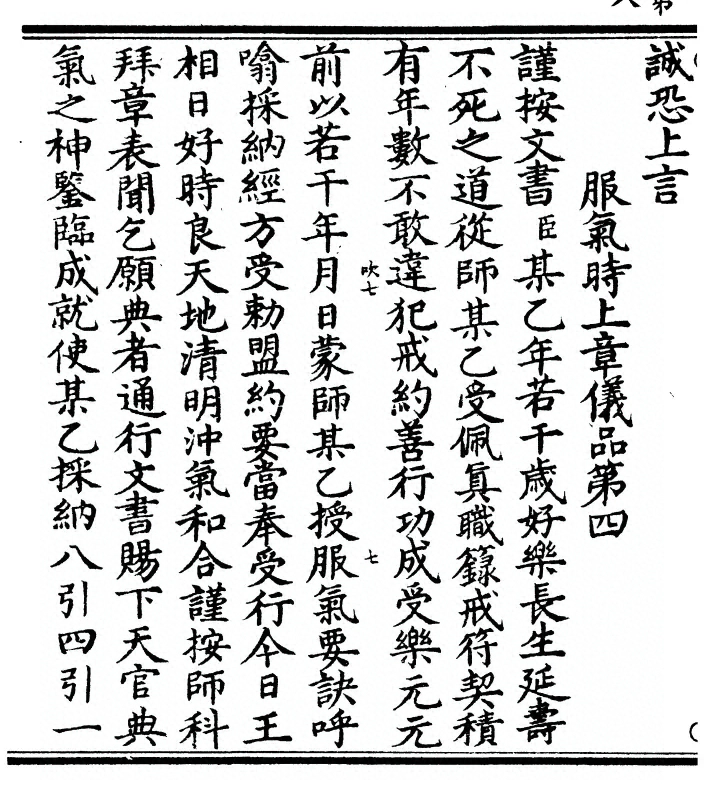 誠恐上言
服氣時上章儀品第四
謹按文書臣某乙年若干歲好樂長生延壽
不死之道從師某乙受佩眞職籙戒符契積
有年數不敢違犯戒約善行功成受樂元元
吹七
七
前以若干年月日蒙師某乙授服氣要訣呼
噏採納經方受勑盟約要當奉受行今日王
相日好時良天地清明沖氣和合謹按師科
拜章表聞乞願典者通行文書賜下天官典
氣之神鑒臨成就使某乙採納八引四引一